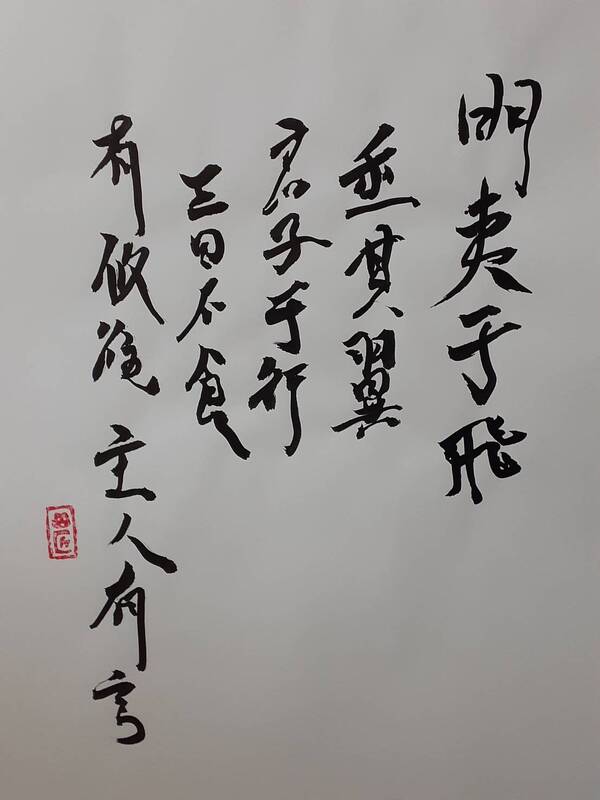 明夷于飛
垂其翼
君子于行
三日不食
有攸往主人有言